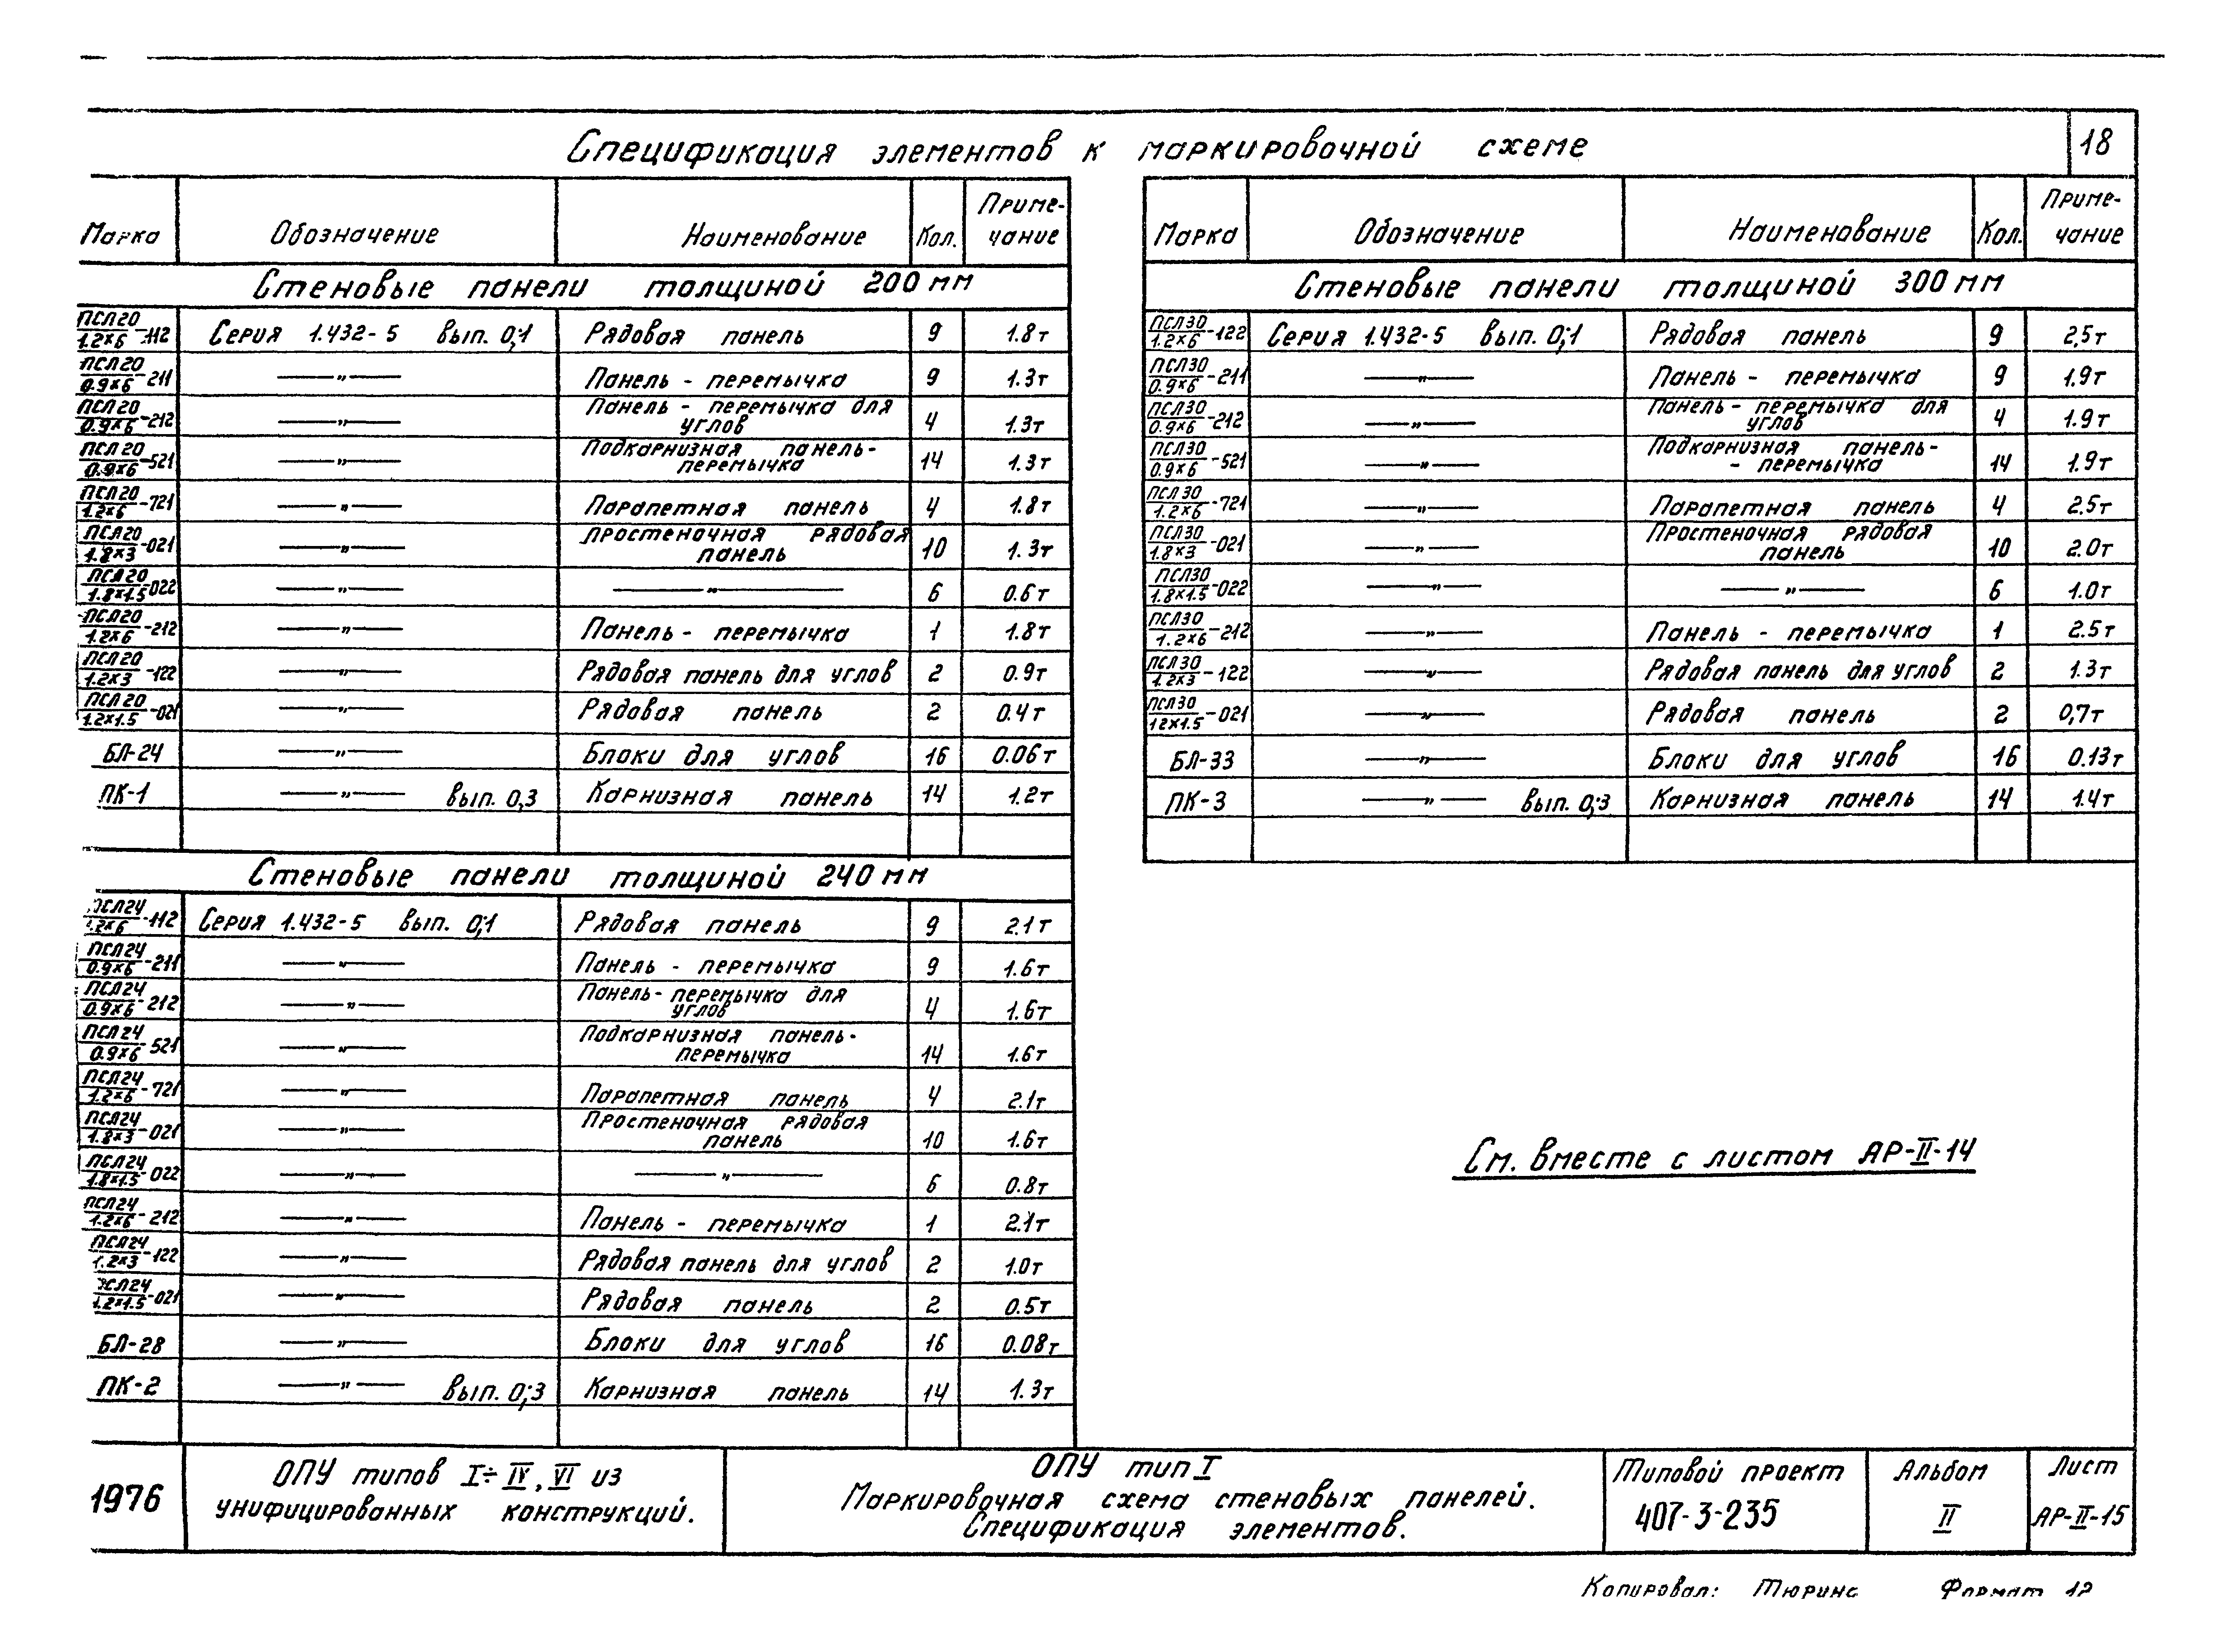 18
Спецификация элементов к маркировочной схеме
Марка Обозначение Наименование Кол. Приме-
чание
Стеновые панели толщиной 200 мм
ПСЛ20
1.2×6 -112 Серия 1.432-5 вып. 0;1 Рядовая панель 9 1.8т
ПСЛ20
0.9×6 -211 —„— Панель - перемычка 9 1.3т
ПСЛ20
0.9×6 -212 —„— Панель - перемычка для
углов 4 1.3т
ПСЛ20
0.9×6 -521 —„— Подкарнизная панель-
перемычка 14 1.3т
ПСЛ20
1.2×6 -721 —„— Парапетная панель 4 1.8т
ПСЛ20
1.8×3 -021 —„— Простеночная рядовая
панель 10 1.3т
ПСЛ20
1.8×1.5 -022 —„— —„— 6 0.6т
ПСЛ20
1.2×6 -212 —„— Панель - перемычка 1 1.8т
ПСЛ20
1.2×3 -122 —„— Рядовая панель для углов 2 0.9т
ПСЛ20
1.2×1.5 -021 —„— Рядовая панель 2 0.4т
БЛ-24 —„— Блоки для углов 16 0.06т
ПК-1 —„— вып. 0;3 Карнизная панель 14 1.2т
Стеновые панели толщиной 240 мм
ПСЛ24
1.2×6 -112 Серия 1.432-5 вып. 0;1 Рядовая панель 9 2.1т
ПСЛ24
0.9×6 -211 —„— Панель - перемычка 9 1.6т
ПСЛ24
0.9×6 -212 —„— Панель- перемычка для
углов 4 1.6т
ПСЛ24
0.9×6 -521 —„— Подкарнизная панель-
перемычка 14 1.6т
ПСЛ24
1.2×6 -721 —„— Парапетная панель 4 2.1т
ПСЛ24
1.8×3 -021 —„— Простеночная рядовая
панель 10 1.6т
ПСЛ24
1.8×1.5 -022 —„— —„— 6 0.8т
ПСЛ24
1.2×6 -212 —„— Панель - перемычка 1 2.1т
ПСЛ24
1.2×3 -122 —„— Рядовая панель для углов 2 1.0т
ПСЛ24
1.2×1.5 -021 —„— Рядовая панель 2 0.5т
БЛ-28 —„— Блоки для углов 16 0.08т
ПК-2 —„— вып. 0;3 Карнизная панель 14 1.3т
Марка Обозначение Наименование Кол. Приме-
чание
Стеновые панели толщиной 300 мм
ПСЛ30
1.2×6 -122 Серия 1.432-5 вып. 0;1 Рядовая панель 9 2,5т
ПСЛ30
0.9×6 -211 —„— Панель - перемычка 9 1.9т
ПСЛ30
0.9×6 -212 —„— Панель - перемычка для
углов 4 1.9т
ПСЛ30
0.9×6 -521 —„— Подкарнизная панель-
- перемычка 14 1.9т
ПСЛ30
1.2×6 -721 —„— Парапетная панель 4 2.5т
ПСЛ30
1.8×3 -021 —„— Простеночная рядовая
панель 10 2.0т
ПСЛ30
1.8×1.5 -022 —„— —„— 6 1.0т
ПСЛ30
1.2×6 -212 —„— Панель - перемычка 1 2.5т
ПСЛ30
1.2×3 -122 —„— Рядовая панель для углов 2 1.3т
ПСЛ30
12×1.5 -021 —„— Рядовая панель 2 0,7т
БЛ-33 —„— Блоки для углов 16 0.13т
ПК-3 —„— вып. 0;3 Карнизная панель 14 1.4т
См. вместе с листом АР-II-14
1976
ОПУ типов I÷IV, VI из
унифицированных конструкций.
ОПУ тип I
Маркировочная схема стеновых панелей.
Спецификация элементов.
Типовой проект
407-3-235
Альбом
II
Лист
АР-II-15
Копировал: Тюрина Формат 12